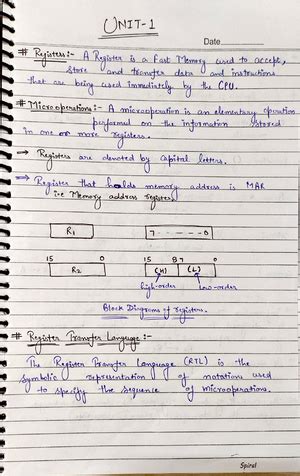 UNIT-1
Date
# Registers:- A Register is a Fast Memory used to accept,
store and transfer data and instructions
that are being used immediately by the CPU.
# Microoperations:- A microoperation is an elementary operation
performed on the information stored
in one or more registers.
→ Registers are denoted by Capital letters.
⇒ Register that holds memory address is MAR
i.e Memory address register.
R1 7 - - - - - 0
15 0 15 8 7 0
R2 (H) (L)
high-order low-order
Block Diagrams of registers.
# Register Transfer Language:-
The Register Transfer Language (RTL) is the
symbolic representation of notations used
to specify the sequence of microoperations.
Spiral